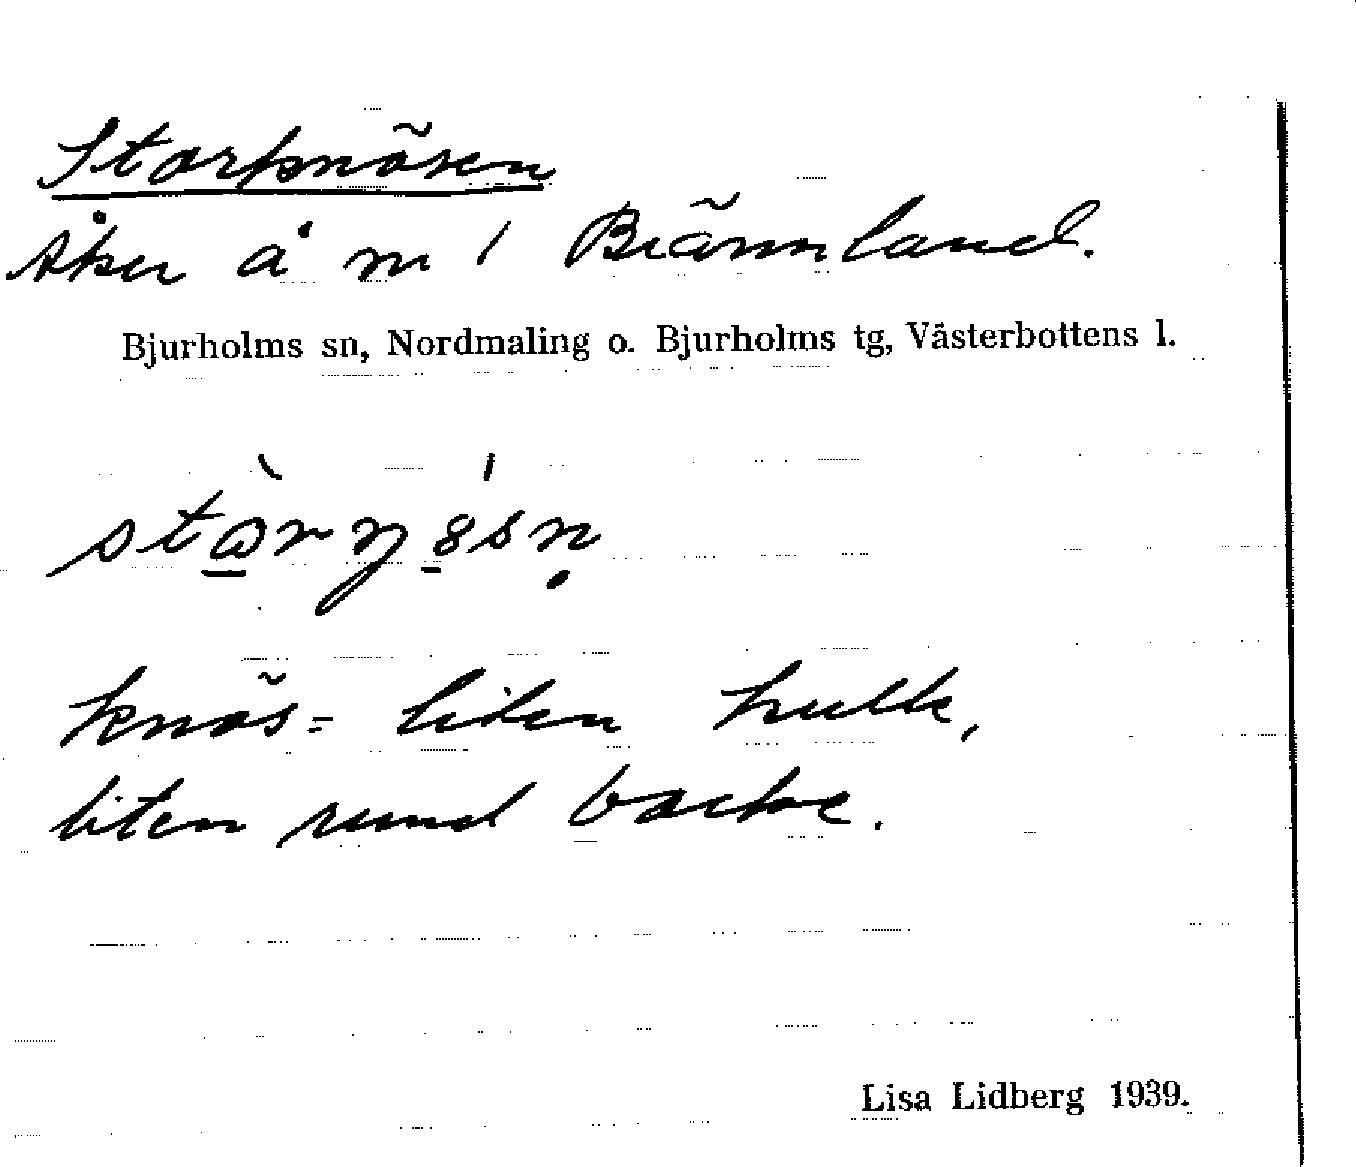 Storknösen
Åker å m / Brännland.
Bjurholms sn, Nordmaling o. Bjurholms tg, Västerbottens l.
knös = liten kulle,
liten rund backe.
Lisa Lidberg 1939.